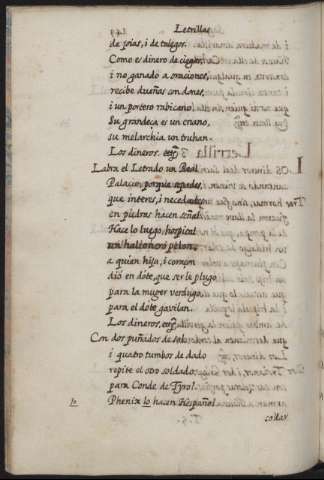 Letrillas
de joias, i de talegos.
Como es dinero de ciegos,
i no ganado a oraciones,
recibe dueñas con dones,
i un portero rubicano:
Su grandeça es un enano,
su melarchia un truhan.
Los dineros.
Labra el Letrado un Real
Palacio, porque sepades,
que interes, i necedades
en piedras hacen señal.
Hace lo luego, hospital
un halconero pelon,
a quien hija, i coraçon
dió en dote, que ser le plugo
para la muger verdugo,
para el dote gavilan.
Los dineros,
Con dos puñados de sol
i quatro tumbos de dado
repite el otro soldado
para Conde de Tyrol.
lo
Phenix lo hacen Español
collar